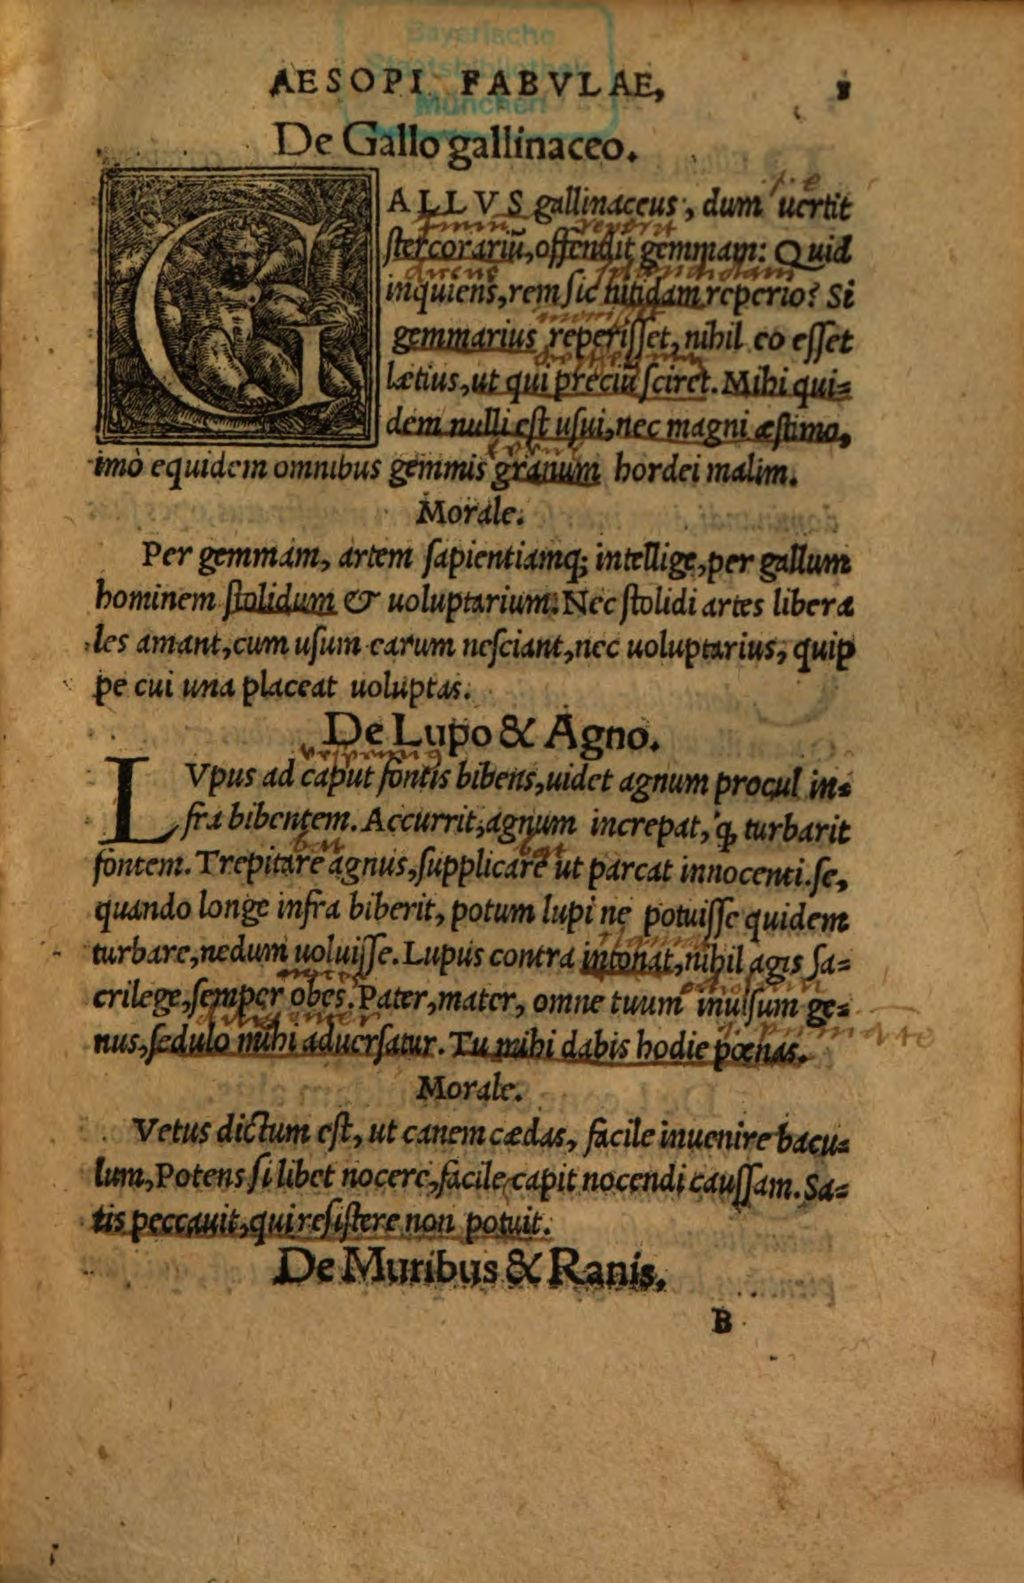 Bayerische
Staatsbibliothek
München
AESOPI FABVLAE,
De Gallo gallinaceo.
GALLVS gallinaceus, dum uertit
ſtercorariũ, offendit gemmam: Quid
inquiens, rem ſic nitidam reperio? Si
gemmarius reperiſſet, nihil eo eſſet
lætius, ut qui preciũ ſciret. Mihi qui=
dem nulli eſt uſui, nec magni æſtimo,
imò equidem omnibus gemmis granum hordei malim.
Morale.
Per gemmam, artem ſapientiamq; intellige, per gallum
hominem ſtolidum & uoluptarium. Nec ſtolidi artes libera
les amant, cum uſum earum neſciant, nec uoluptarius, quip
pe cui una placeat uoluptas.
De Lupo & Agno.
LVpus ad caput fontis bibens, uidet agnum procul in=
fra bibentem. Accurrit, agnum increpat, ꝙ turbarit
fontem. Trepitare agnus, ſupplicare ut parcat innocenti. ſe,
quando longe infra biberit, potum lupi ne potuiſſe quidem
turbare, nedum uoluiſſe. Lupus contra intonat, nihil agis ſa=
crilege, ſemper obes. Pater, mater, omne tuum inuiſum ge=
nus, ſedulo mihi aduerſatur. Tu mihi dabis hodie pœnas.
Morale.
Vetus dictum eſt, ut canem cædas, facile inuenire bacu=
lum, Potens ſi libet nocere, facile capit nocendi cauſſam. Sa=
tis peccauit, qui reſiſtere non potuit.
De Muribus & Ranis.
B